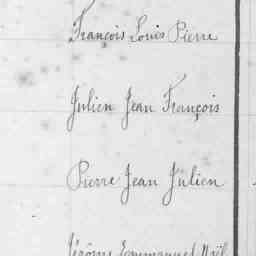 François Louis Pierre
Julien Jean François
Pierre Jean Julien
Jérôme Emmanuel Noël